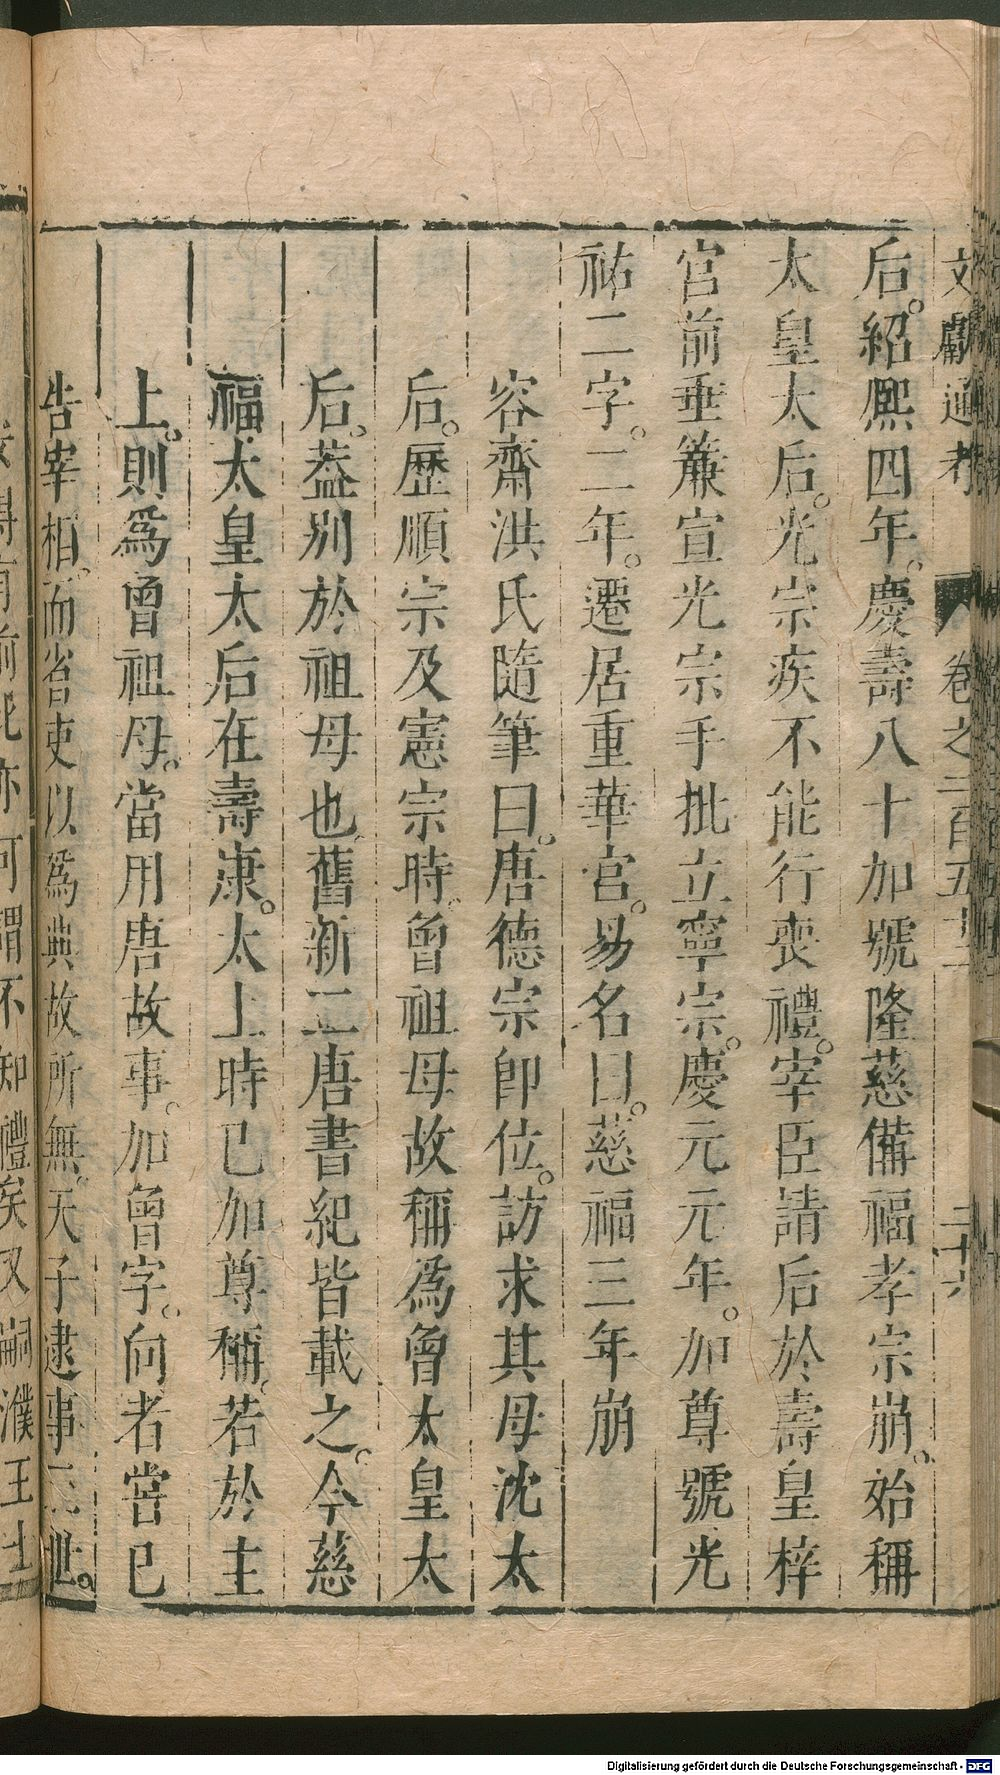 文獻通考 卷之二百五十二 二十六
后。紹熙四年。慶壽八十加號隆慈備福孝宗崩。始稱
太皇太后。光宗疾不能行喪禮。宰臣請后於壽皇梓
宮前垂簾宣光宗手批立寧宗。慶元元年。加尊號光
祐二字。二年。遷居重華宮。易名曰。慈福三年崩
容齋洪氏隨筆曰。唐德宗卽位。訪求其母沈太
后。歷順宗及憲宗時。曾祖母故稱爲曾太皇太
后。葢別於祖母也。舊新二唐書紀皆載之。今慈
福太皇太后在壽康。太上時已加尊稱。若於主
上。則爲曾祖母。當用唐故事。加曾字。向者嘗已
告宰相。而省吏以爲典故所無。天子逮事三世。
前 亦可謂不知禮矣又嗣濮王士
Digitalisierung gefördert durch die Deutsche Forschungsgemeinschaft - DFG